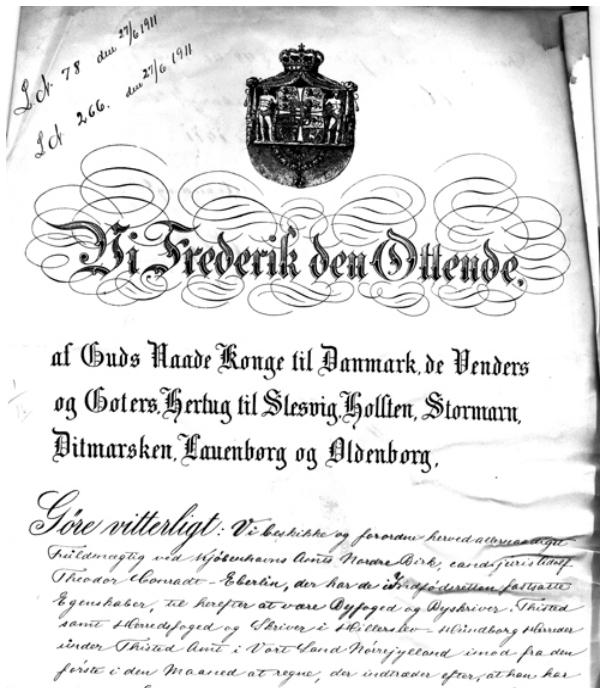 L N. 78 den 27/6 1911
L N. 266. den 27/6 1911
Vi Frederik den Ottende,
af Guds Naade Konge til Danmark, de Venders
og Goters, Hertug til Slesvig, Holsten, Stormarn,
Ditmarsken, Lauenborg og Oldenborg,
Göre vitterligt: Vi beskikke og forordne herved allernaadigst
Fuldmægtig ved Kjøbenhavns Amts Nordre Birk, cand. juris Adolf
Theodor Conradt-Eberlin, der har de i Indfødsretten fastsatte
Egenskaber, til herefter at være Byfoged og Byskriver i Thisted
samt Herredsfoged og Skriver i Hillerslev-Hundborg Herreder
under Thisted Amt i Vort Land Nørrejylland imod fra den
første i den Maaned at regne, der indtræder efter, at han har